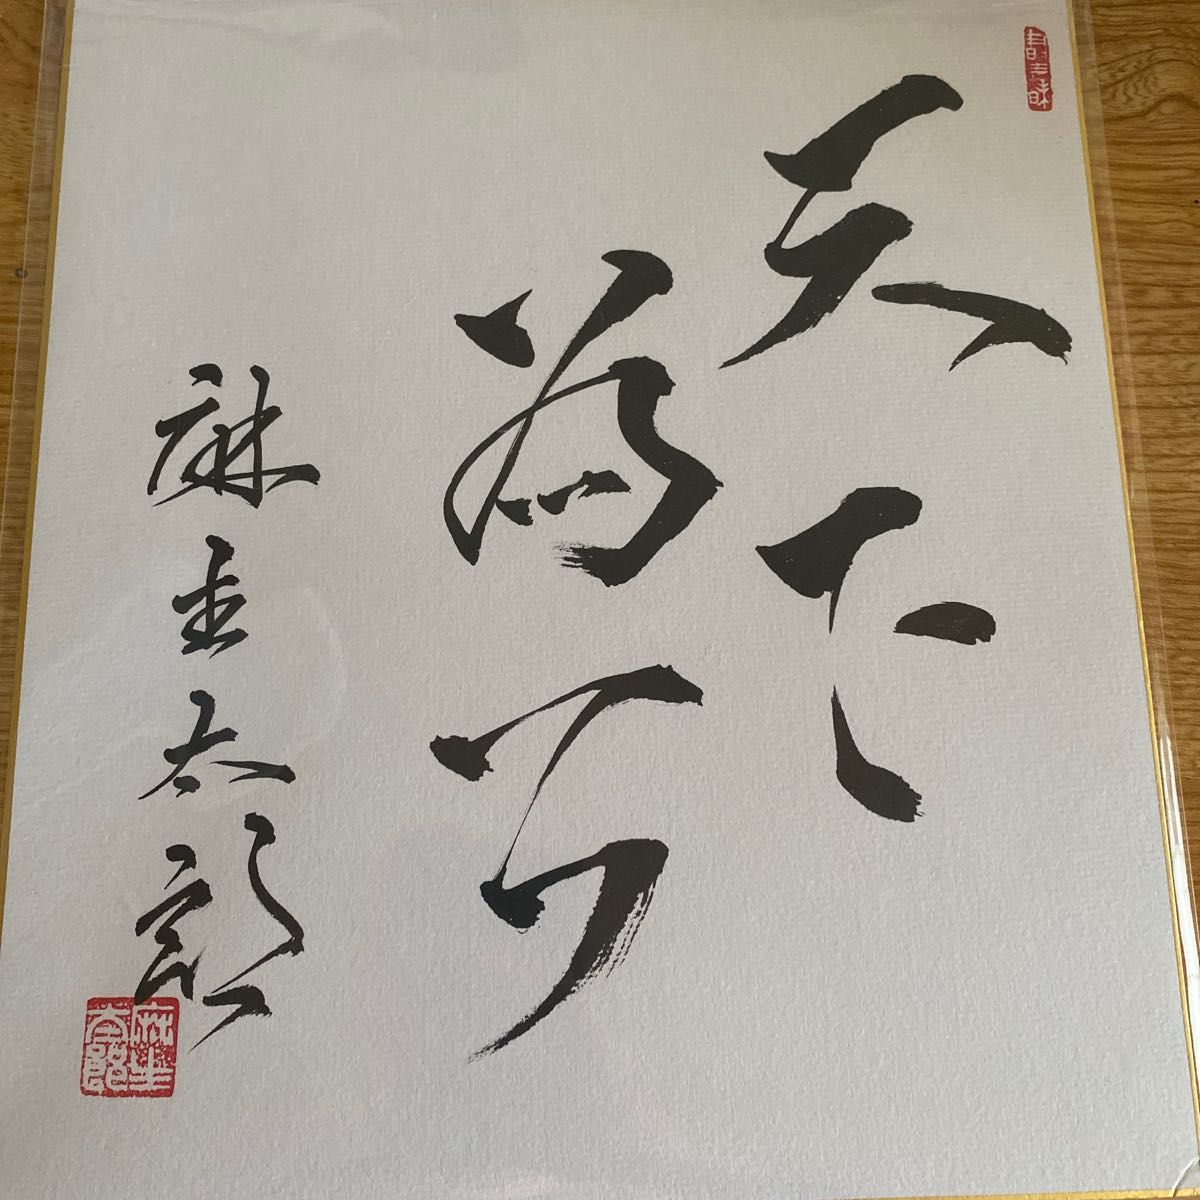 天下
為公
麻生太郎
麻生
太郎